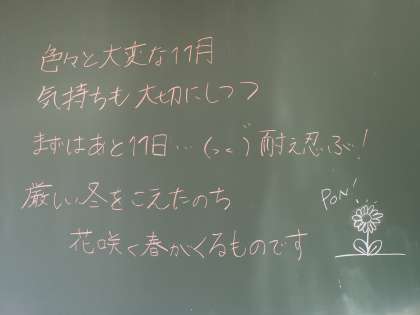 色々と大変な11月
気持ちも大切にしつつ
まずはあと11日…(っ<`)耐え忍ぶ!
厳しい冬をこえたのち
花咲く春がくるものです
PON!